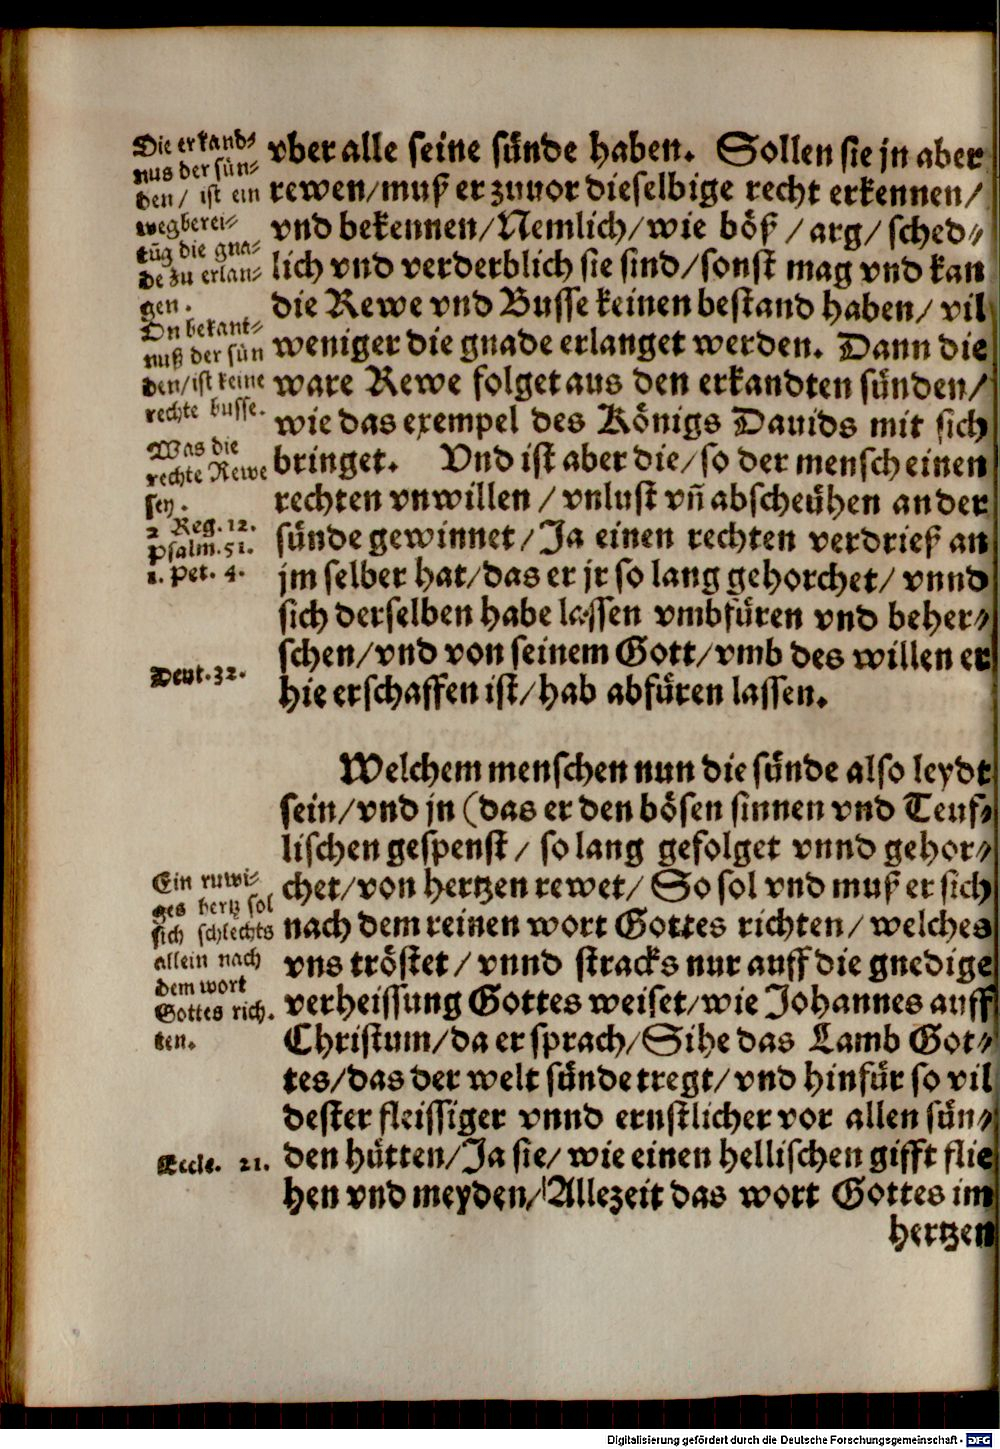 Die erkand⸗
nus der sün⸗
den / ist ein
wegberei⸗
tūg die gna⸗
de zu erlan⸗
gen.
On bekant⸗
nuß der sün
den/ist keine
rechte busse.
Was die
rechte Rewe
sey.
2 Reg. 12.
Psalm. 51.
1. Pet. 4.
Deut. 32.
vber alle seine sünde haben. Sollen sie jn aber
rewen/muß er zuuor dieselbige recht erkennen/
vnd bekennen/Nemlich/wie böß / arg/ sched⸗
lich vnd verderblich sie sind/sonst mag vnd kan
die Rewe vnd Busse keinen bestand haben/ vil
weniger die gnade erlanget werden. Dann die
ware Rewe folget aus den erkandten sünden/
wie das exempel des Königs Dauids mit sich
bringet. Vnd ist aber die/so der mensch einen
rechten vnwillen / vnlust vñ abscheühen an der
sünde gewinnet/Ja einen rechten verdrieß an
jm selber hat/das er jr so lang gehorchet/ vnnd
sich derselben habe lassen vmbfüren vnd beher⸗
schen/vnd von seinem Gott/vmb des willen er
hie erschaffen ist/hab abfüren lassen.
Welchem menschen nun die sünde also leydt
sein/vnd jn (das er den bösen sinnen vnd Teuf⸗
lischen gespenst / so lang gefolget vnnd gehor⸗
chet/von hertzen rewet/ So sol vnd muß er sich
nach dem reinen wort Gottes richten/ welches
vns tröstet/ vnnd stracks nur auff die gnedige
verheissung Gottes weiset/wie Johannes auff
Christum/da er sprach/Sihe das Lamb Got⸗
tes/das der welt sünde tregt/ vnd hinfür so vil
dester fleissiger vnnd ernstlicher vor allen sün⸗
den hütten/Ja sie/ wie einen hellischen gifft flie
hen vnd meyden/Allezeit das wort Gottes im
hertzen
Ein ruwi⸗
ges hertz sol
sich schlechts
allein nach
dem wort
Gottes rich.
ten.
Eccle. 21.
Digitalisierung gefördert durch die Deutsche Forschungsgemeinschaft - DFG